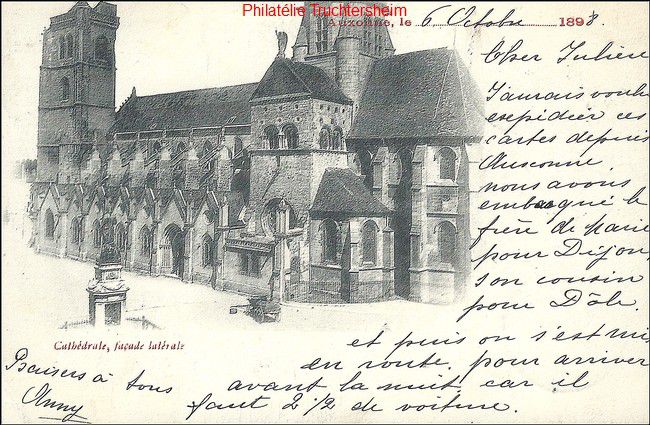 Philatélie Truchtersheim
Auxonne, le 6 Octobre 1898.
Cher Julien
J'aurais voulu
expédier ces
cartes depuis
Auxonne,
nous avons
embarqué le
frère de Marie
pour Dijon,
son cousin
pour Dôle.
et puis on s'est mis
en route, pour arriver
avant la nuit car il
faut 2 1/2 de voiture.
Cathédrale, façade latérale
Baisers à tous
Anny
Philatélie Truchtersheim